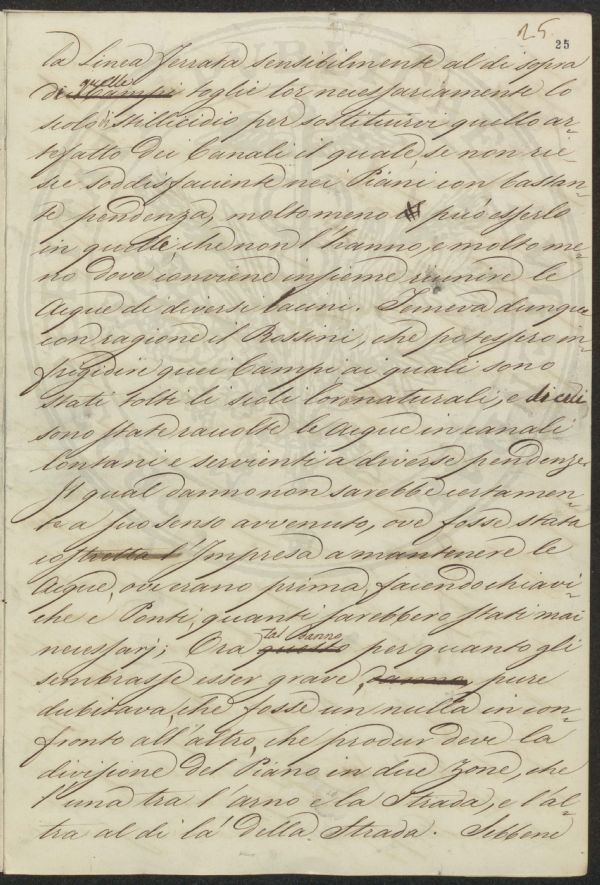 25
25
la Linea ferrata sensibilmente al di sopra
di quelli Campi toglie lor necessariamente lo
scolo distillicidio per sostituirvi quello ar-
tefatto dei Canali il quale, se non rie-
sce soddisfaciente nei Piani con bastan-
te pendenza, molto meno può esserlo
in quelli che non l'hanno, e molto me-
no dove conviene insieme riunire le
Acque di diversi bacini. Temeva dunque
con ragione il Rossini, che potessero in-
frigidire quei Campi ai quali sono
stati tolti li scoli loro naturali, e di cui
sono state raccolte le Acque in canali
lontani e servienti a diverse pendenze
Il qual danno non sarebbe certamen-
te a suo senso avvenuto, ove fosse stata
costretta l'Impresa a mantenere le
Acque, ov'erano prima, facendo chiavi-
che e Ponti, quanti sarebbero stati mai
necessarj; Ora tal danno questo per quanto gli
sembrasse esser grave, danno, pure
dubitava, che fosse un nulla in con-
fronto all'altro, che produr deve la
divisione del Piano in due Zone, che
l'una tra l'arno e la Strada, e l'al-
tra al di là della Strada. Sebbene